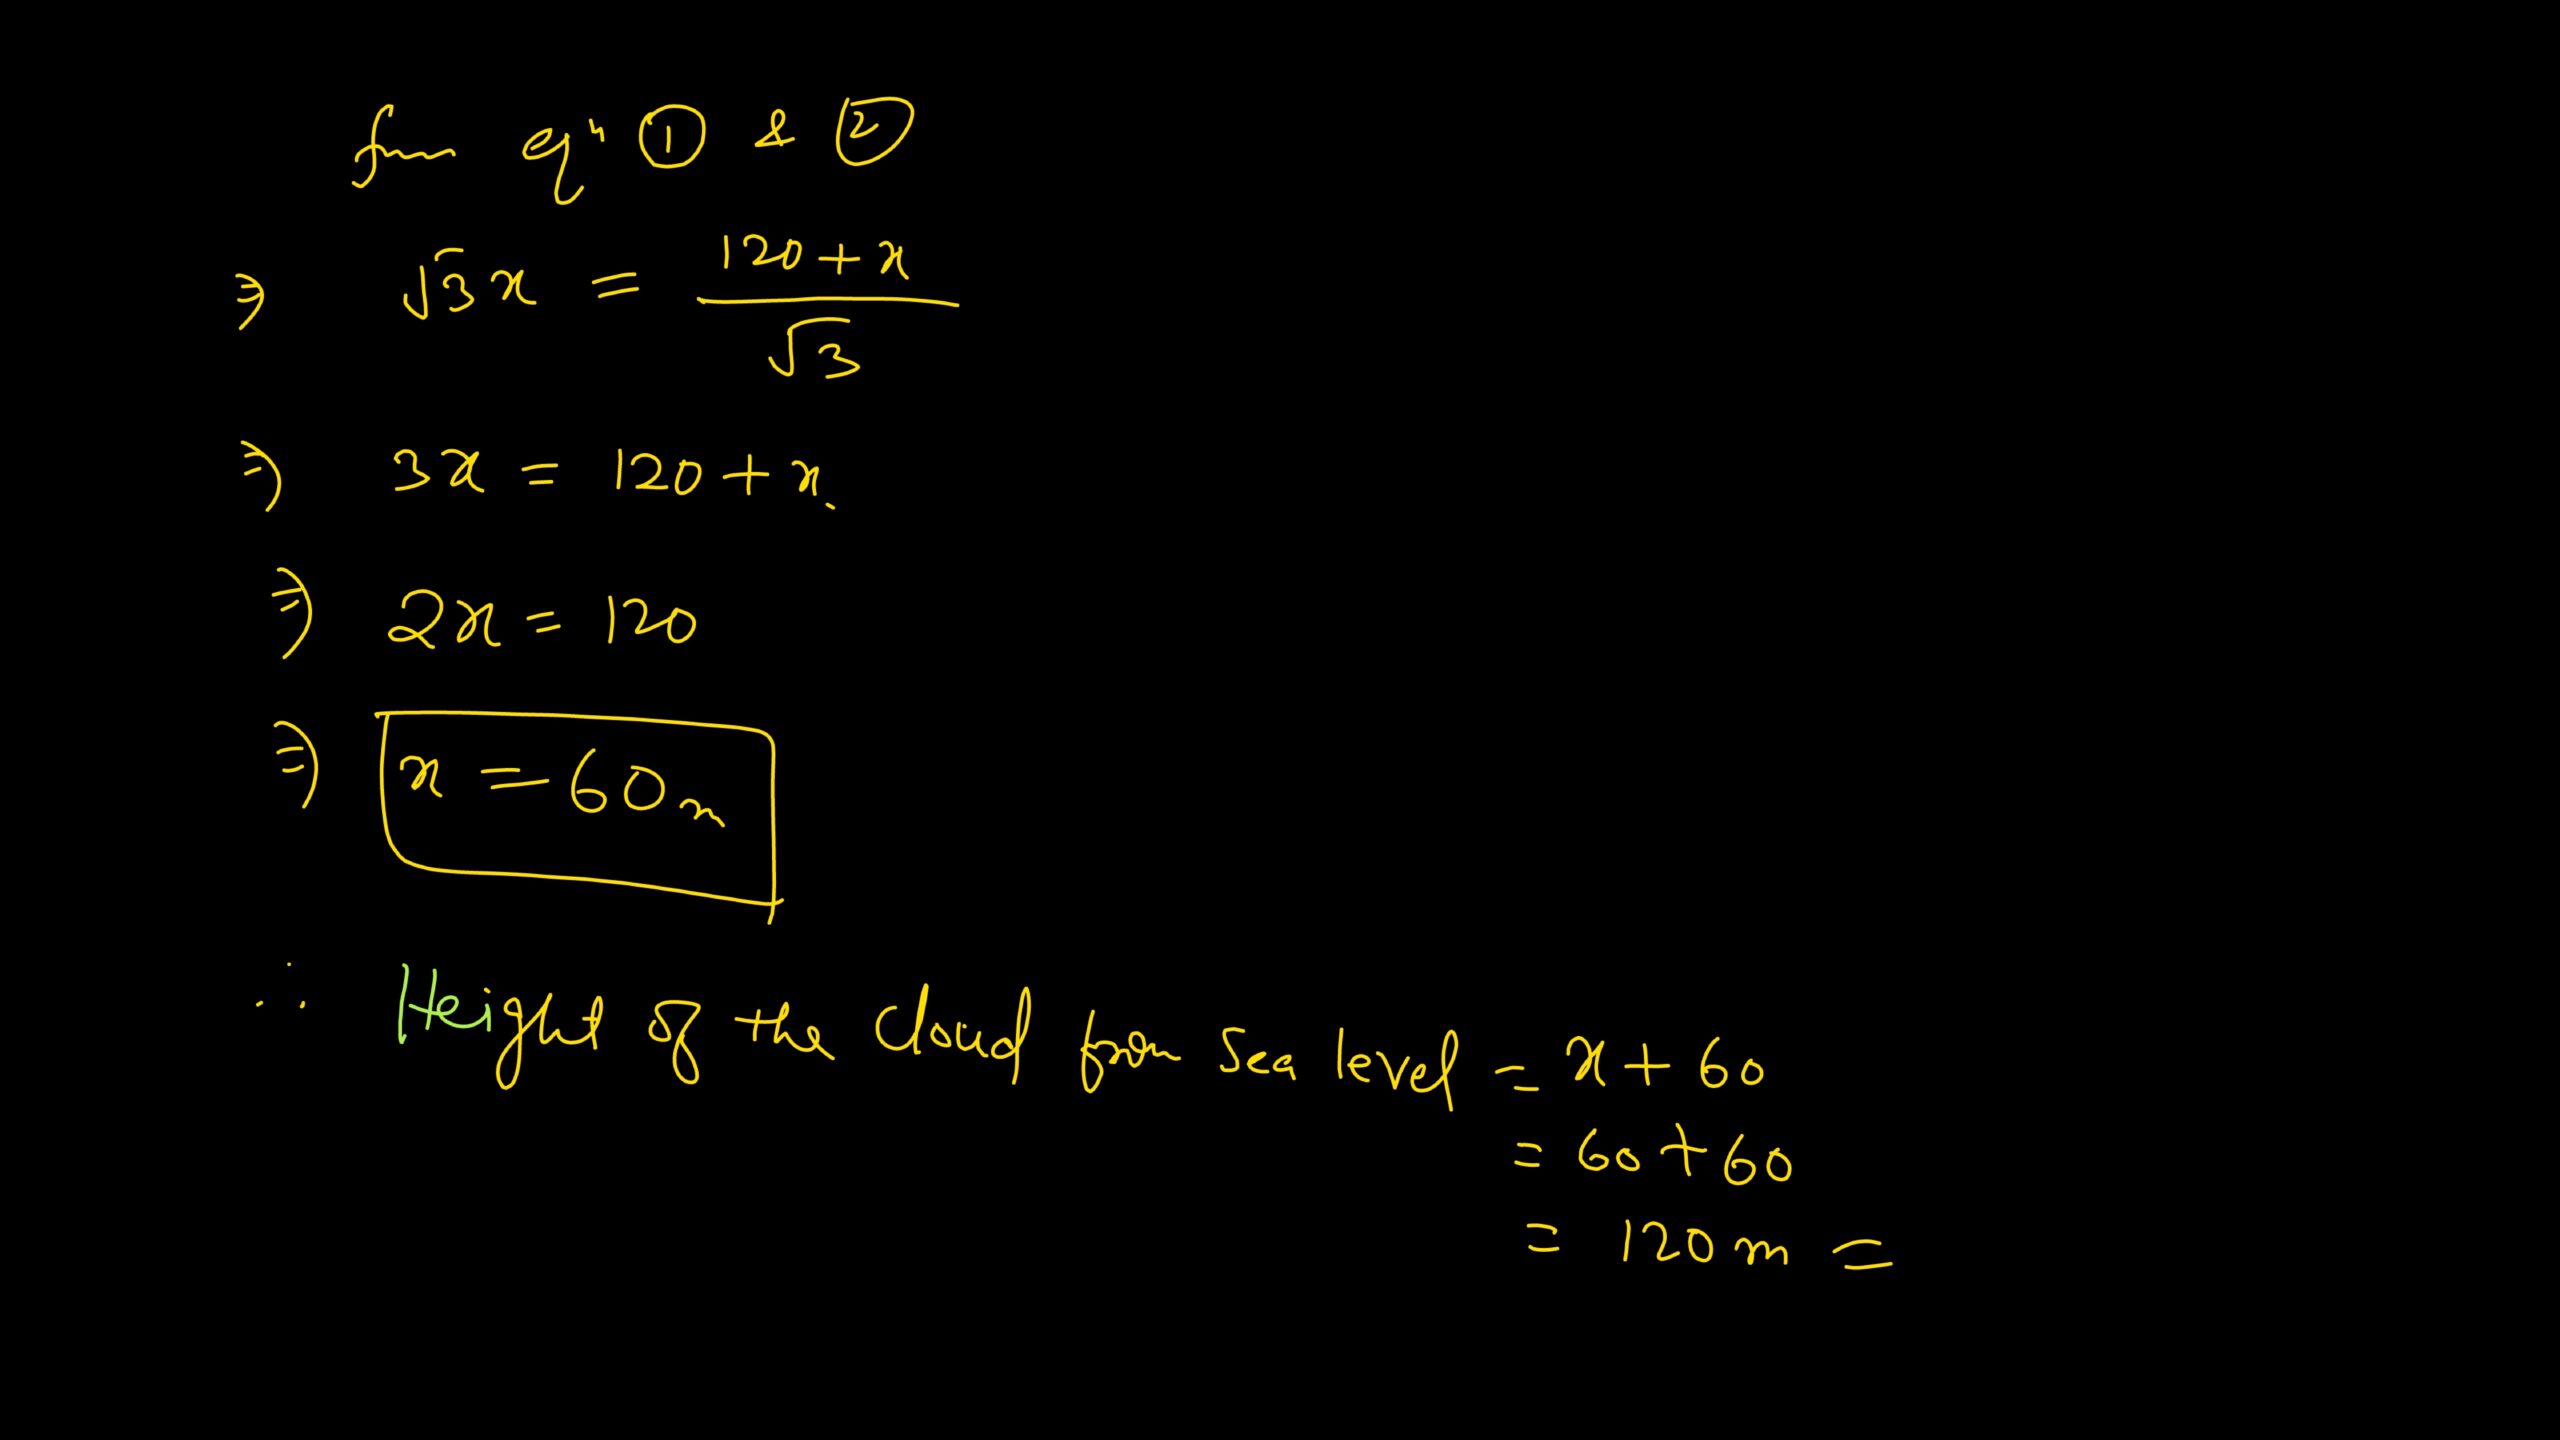 from eqⁿ ① & ②
⇒ √3x = (120 + x)/√3
⇒ 3x = 120 + x.
⇒ 2x = 120
⇒ x = 60m
∴ Height of the Cloud from Sea level = x + 60
= 60 + 60
= 120 m =